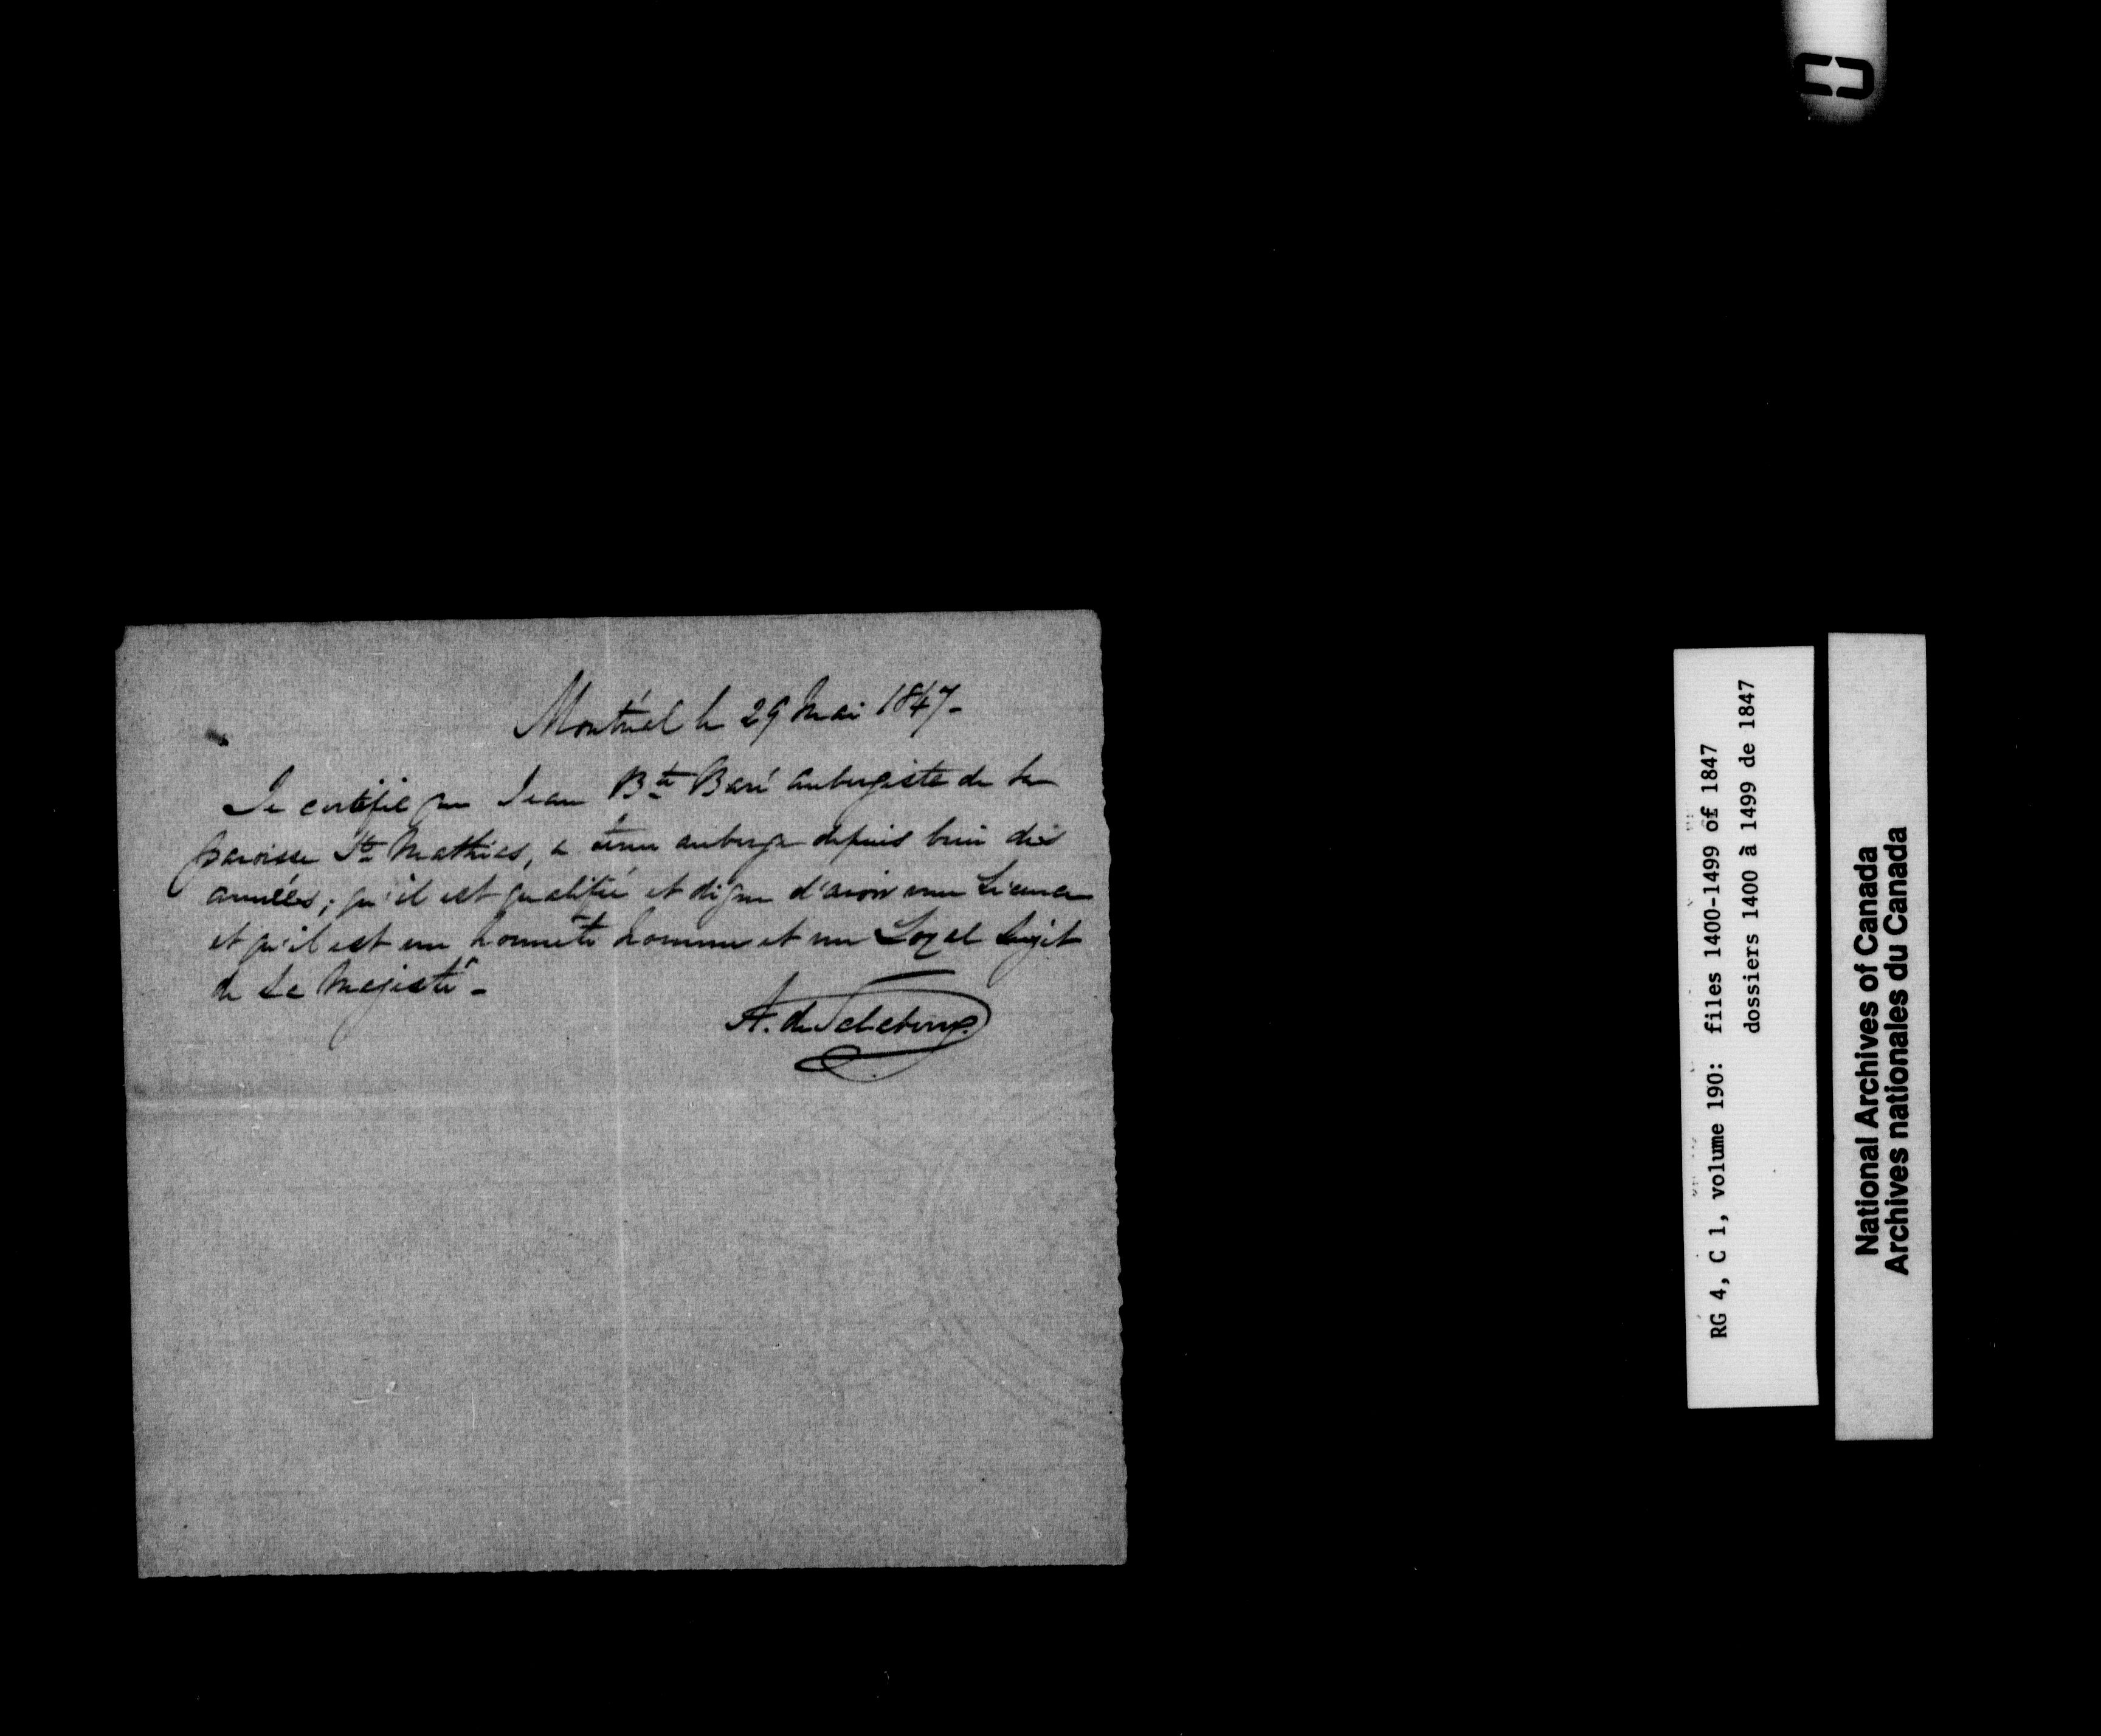 Montréal le 29 Mai 1847-
Je certifie que Jean Bte Baré aubergiste de la
paroisse St Mathias, a tenu auberge depuis dix
années; qu'il est qualifié et digne d'avoir une Licence
et qu'il est un honnête homme et un Loyal Sujet
de Sa Majesté -
A. de
RG 4, C 1, volume 190: files 1400-1499 of 1847
dossiers 1400 à 1499 de 1847
National Archives of Canada
Archives nationales du Canada